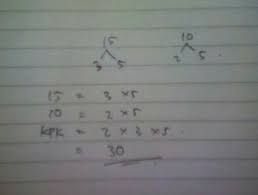 15 10
3 5 2 5
15 = 3 x 5
10 = 2 x 5
KPK = 2 x 3 x 5
= 30